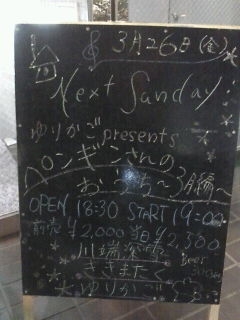 3月26日(金)
Next Sunday
ゆりかごpresents
ロンギンさんの
おうち~3月編~
OPEN 18:30 START 19:00
前売 ¥2,000 当日 ¥2,500
川端深雪
ささきたく
Beer
ゆりかご